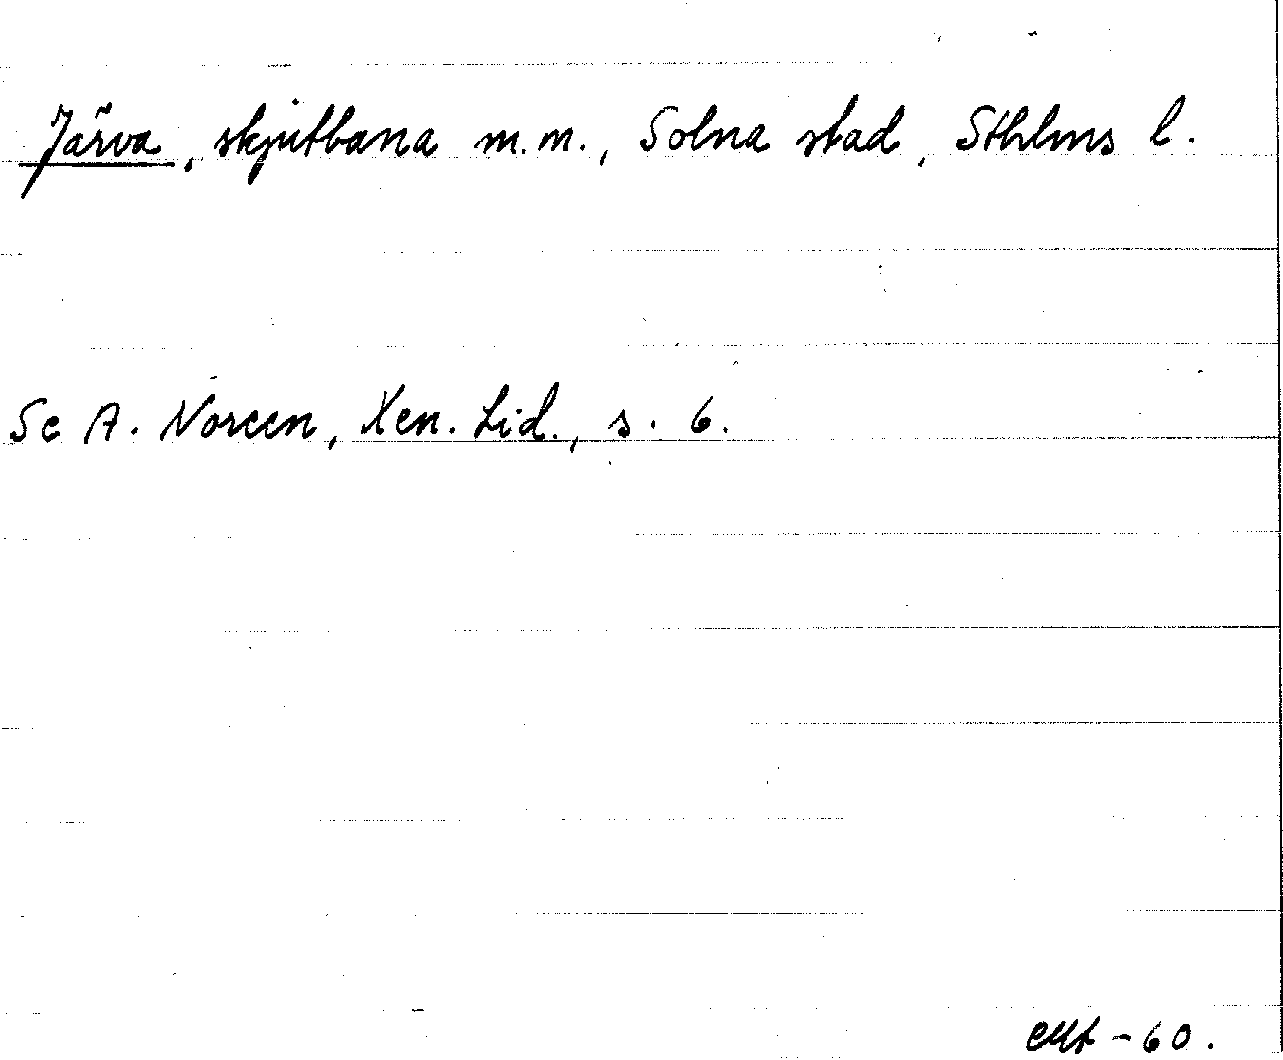 Järva, skjutbana m.m., Solna stad, Sthlms l.
Se A. Noreen, Xen. Lid., s. 6.
-60.